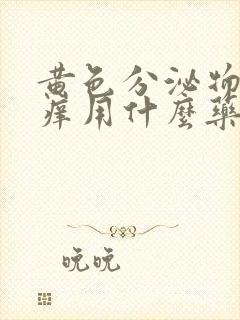 黄色分泌物
痒用什麼藥
晚晚